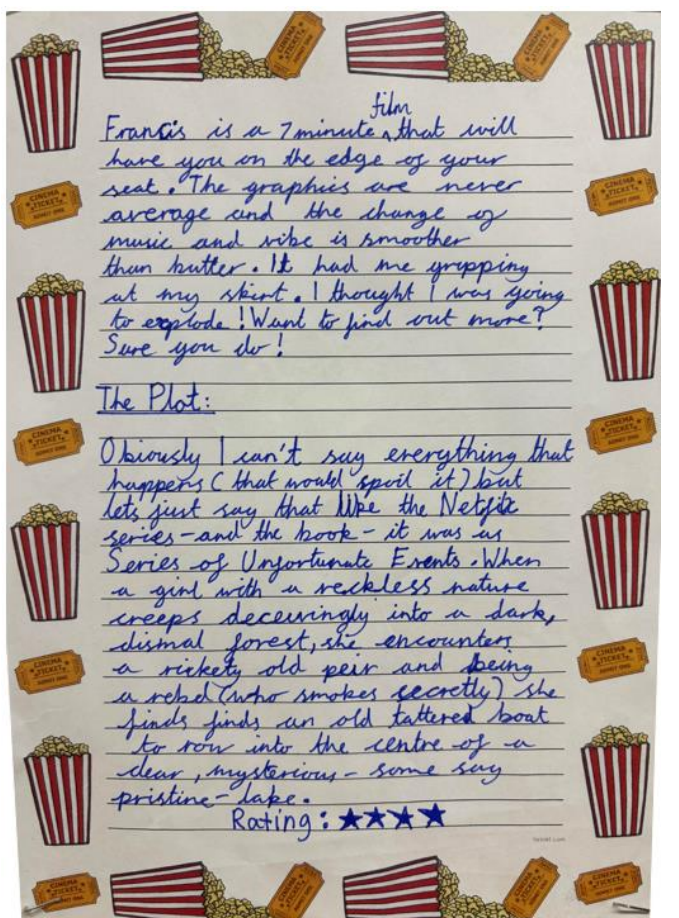 film
Francis is a 7 minute ^ that will
have you on the edge of your
seat. The graphics are never
average and the change of
music and vibe is smoother
than butter. It had me gripping
at my skirt. I thought I was going
to explode! Want to find out more?
Sure you do!
The Plot:
Obiously I can't say everything that
happens (that would spoil it) but
lets just say that like the Netflix
series - and the book - it was as
Series of Unfortunate Events. When
a girl with a reckless nature
creeps deceivingly into a dark,
dismal forest, she encounters
a rickety old peir and being
a rebel (who smokes secretly) she
finds finds an old tattered boat
to row into the centre of a
clear, mysterious - some say
pristine - lake.
Rating: ★★★★
CINEMA TICKET
ADMIT ONE
twinkl.com